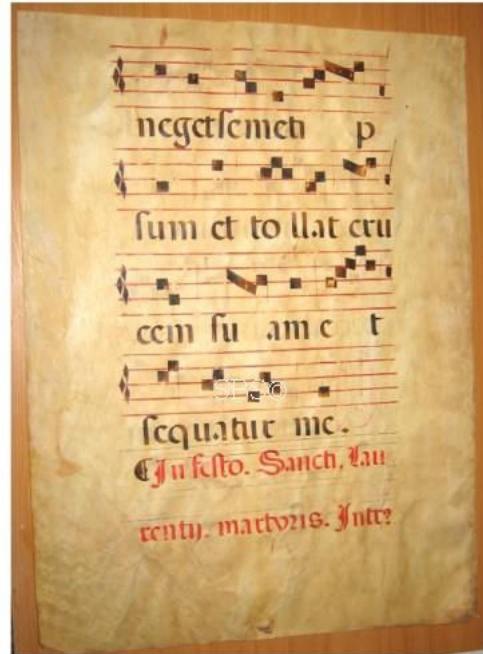 negetsemeti p
sum et to llat cru
cem su am e t
sequatur me.
In festo. Sancti. Lau
rentij. martoris. Intr?